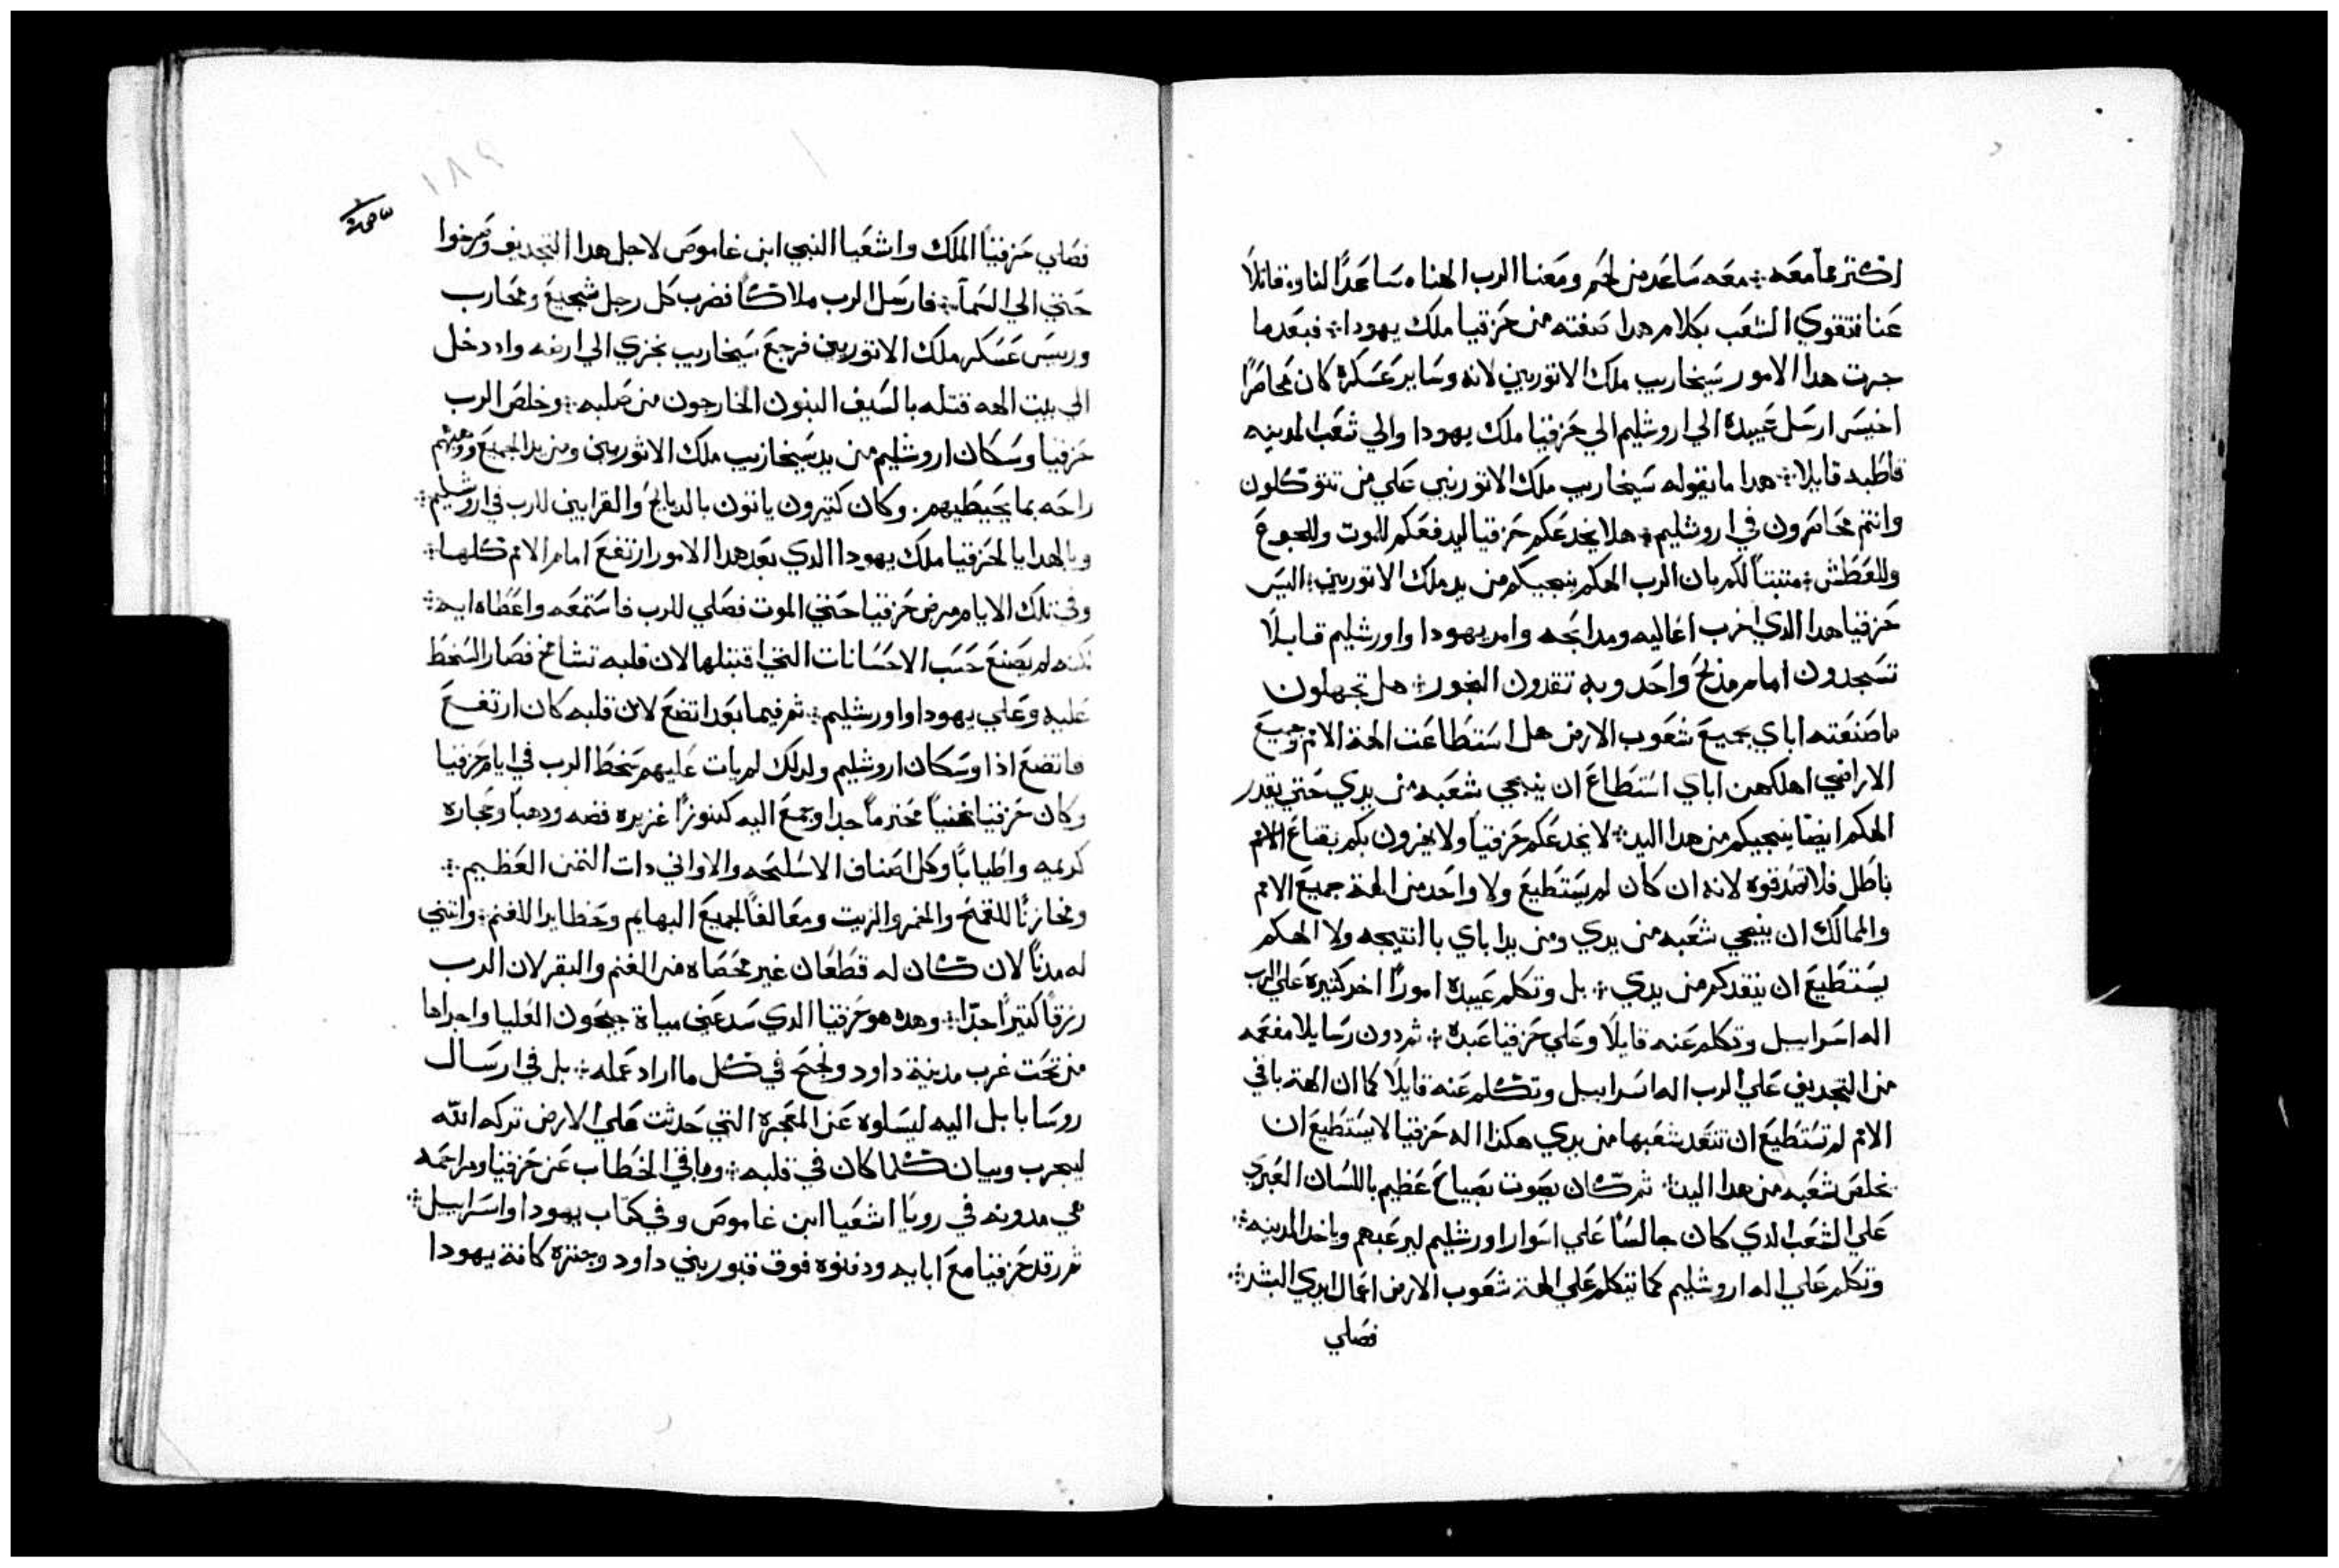 اكتر مما معه ؞ معه ساعد من لحم ومعنا الرب الهنا ساعدًا لنا وقاتلًا
عنا فتقوي الشعب بكلام هدا صفته من حزقيا ملك يهودا ؞ فبعدما
جرت هدا الامور سنخاريب ملك الاتوريين لانه وساير عسكرة كان محاصرًا
اخيس ارسل عبيدة الي اروشليم الي حزقيا ملك يهودا والي شعب المدينه
قاطبه قايلا ؞ هدا ما يقوله سنخاريب ملك الاتوريين علي من تتوكلون
وانتم محاصرون في اروشليم ؞ هلا يخدعكم حزقيا ليدفعكم للموت وللجوع
وللعطش ؞ متبتًا لكم بان الرب الهكم ينجيكم من يد ملك الاتوريين ؞ اليس
حزقيا هدا الدي اخرب اعاليه ومدابحه وامر يهودا واورشليم قايلًا
تسجدون امام مذبح واحد وبه تقدون البخور ؞ هل تجهلون
ما صنعته اباي بجميع شعوب الارض هل استطاعت الهة الامم وجميع
الاراضي اهلكهن اباي استطاع ان ينجي شعبه من يدي حتي يقدر
الهكم ايضًا ينجيكم من هدا اليد ؞ لا يخدعكم حزقيا ولا يغرون بكم بقناع الاثم
باطل فلا تصدقوه لانه ان كان لم يستطيع ولا واحد من الهة جميع الامم
والممالك ان ينجي شعبه من يدي ومن يد اباي باانتيجه ولا الهكم
يستطيع ان ينقدكم من يدي ؞ بل وتكلم عبيدة امورًا اخر كثيرة علي الرب
اله اسراييل وتكلم عنه قايلًا وعلي حزقيا عبدة ؞ ثم دون رسايلا مفعمه
من التجديف علي الرب اله اسراييل وتكلم عنه قايلًا كما ان الهة باقي
الامم لم تستطيع ان تنقد شعبها من يدي هكذا اله حزقيا لا يستطيع ان
يخلص شعبه من هدا اليد ؞ ثم كان يصوت بصياح عظيم باللسان العبري
علي الشعب الدي كان جالسًا علي اسوار اورشليم ليرعبهم وياخد المدينه ؞
وتكلم علي اله اروشليم كما تيكلم علي الهة شعوب الارض اعمال ايدي البشر ؞
فصلي
١٨٩
فصلي حزقيا الملك واشعيا النبي ابن غاموص لاجل هدا التجديف وصرخوا
حتي الي السمآ ؞ فارسل الرب ملاكًا فضرب كل رجل شجيع ومحارب
وريس عسكر ملك الاتوريين فرجع سنخاريب بخزي الي ارضه واد دخل
الي بيت الهه قتله بالسيف البنون الخارجون من صلبه ؞ وخلص الرب
حزقيا وسكان اروشليم من يد سنخاريب ملك الاثوريين ومن يد الجميع ووهبهم
راحه بما يحيطيهم . وكان كتيرون ياتون بالدبايح والقرابين للرب في اروشليم ؞
وبالهدايا لحزقيا ملك يهودا الدي بعد هدا الامور ارتفع امام الامم كلها ؞
وفي تلك الايام مرض حزقيا حتي الموت فصلي للرب فاستمعه واعطاه ايه ؞
لكنه لم يصنع حسب الاحسانات التي اقتبلها لان قلبه تشامخ فصار السخط
عليه وعلي يهودا واورشليم ؞ ثم فيما بعد اتضع لان قلبه كان ارتفع
فاتضع اذا وسكان اروشليم ولدلك لم يات عليهم سخط الرب في ايام حزقيا
وكان حزقيا غنيًا محترمًا جدا وجمع اليه كنوزًا غزيره فضه ودهبًا وحجاره
كريمه واطيابًا وكل اصناف الاسلحه والاواني دات التمن العظيم ؞
ومخازنًا للقمح والخمر والزيت ومعالفًا لجميع البهايم وحظايرا للغنم ؞ وانتني
له مدنًا لان كان له قطعان غير محصاه من الغنم والبقر لان الرب
رزقه كتيرًا جدًا ؞ وهده هو حزقيا الدي سد عين مياة جيحون العليا واجراها
من تحت غرب مدينة داود ونجح في كل ما اراد عمله ؞ بل في ارسال
روسا بابل اليه ليسلوه عن المعجزة التي حدثت علي الارض تركه الله
ليجرب وبيان كلما كان في قلبه ؞ وباقي الخطاب عن حزقيا ومراحمه
هي مدونه في رويا اشعيا ابن غاموص وفي كتاب يهودا واسراييل ؞
ثم رقد حزقيا مع ابايه ودفنوه فوق قبور بني داود وجنزه كافة يهودا